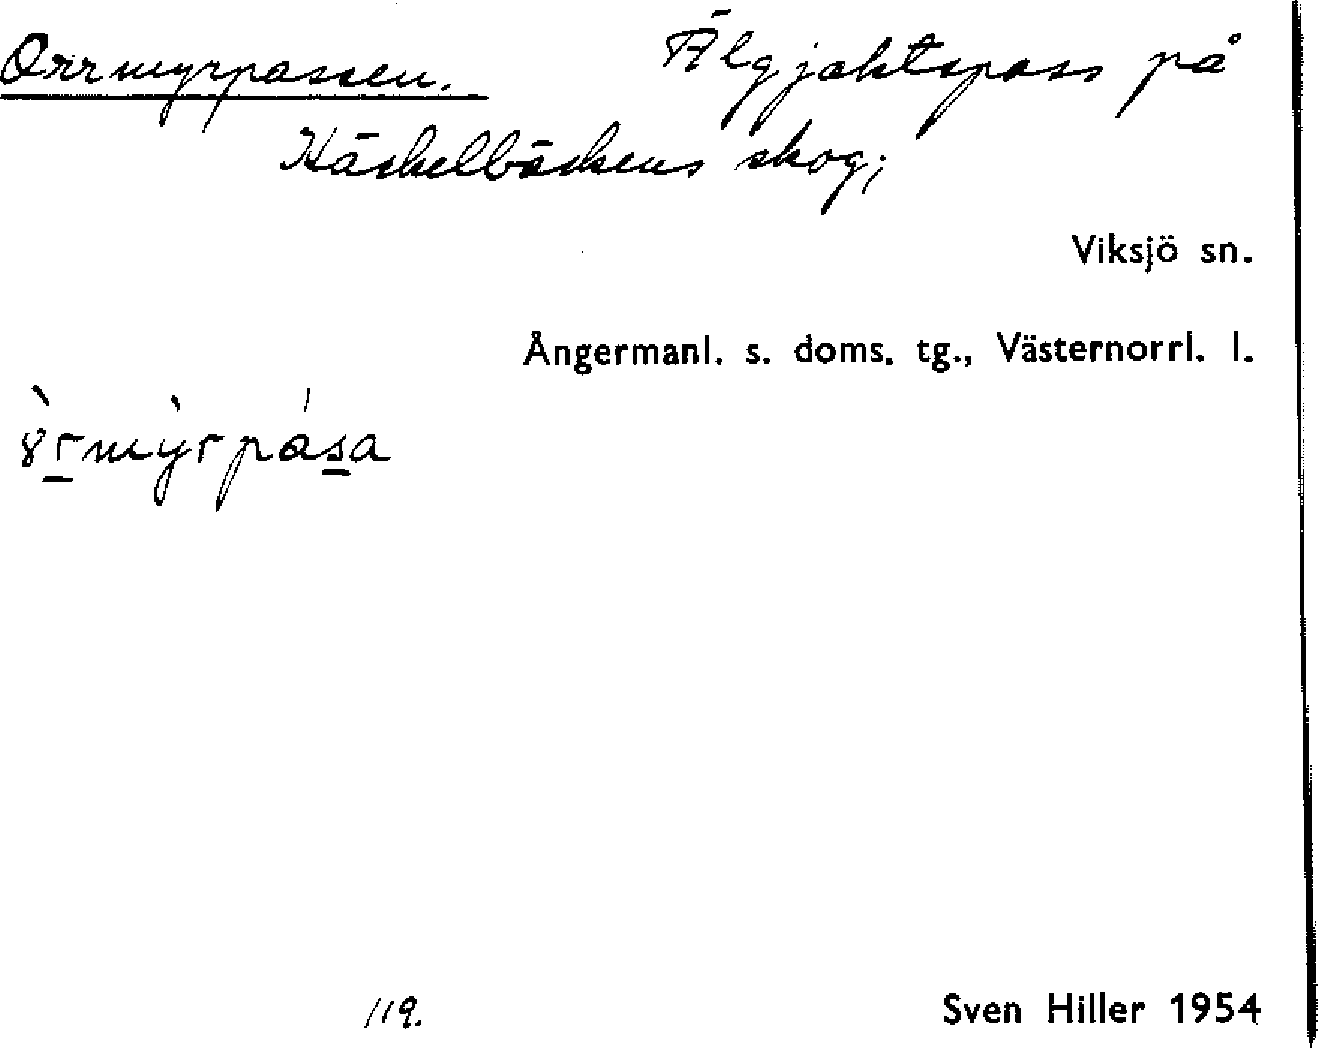 Orrmyrpassen. Älgjaktspass på
Häckelbäckens skog;
Viksjö sn.
Ångermanl. s. doms. tg., Västernorrl. l.
119.
Sven Hiller 1954